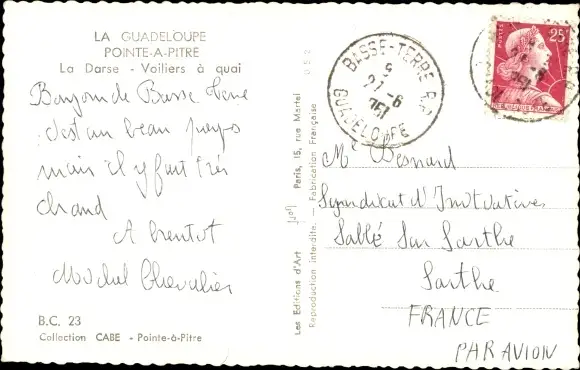 LA GUADELOUPE
POINTE-A-PITRE
La Darse - Voiliers à quai
Bonjour de Basse Terre
c'est un beau pays
mais il y fait très
chaud
A bientot
Michel Chevalier
B.C. 23
Collection CABE - Pointe-à-Pitre
Les Editions d'Art Paris, 15, rue Martel
Reproduction interdite. - Fabrication Française
BASSE-TERRE R.P.
27-6
GUADELOUPE
POSTES
25F
M Besnard
Syndicat d'Initiatives
Sablé Sur Sarthe
Sarthe
FRANCE
PAR AVION